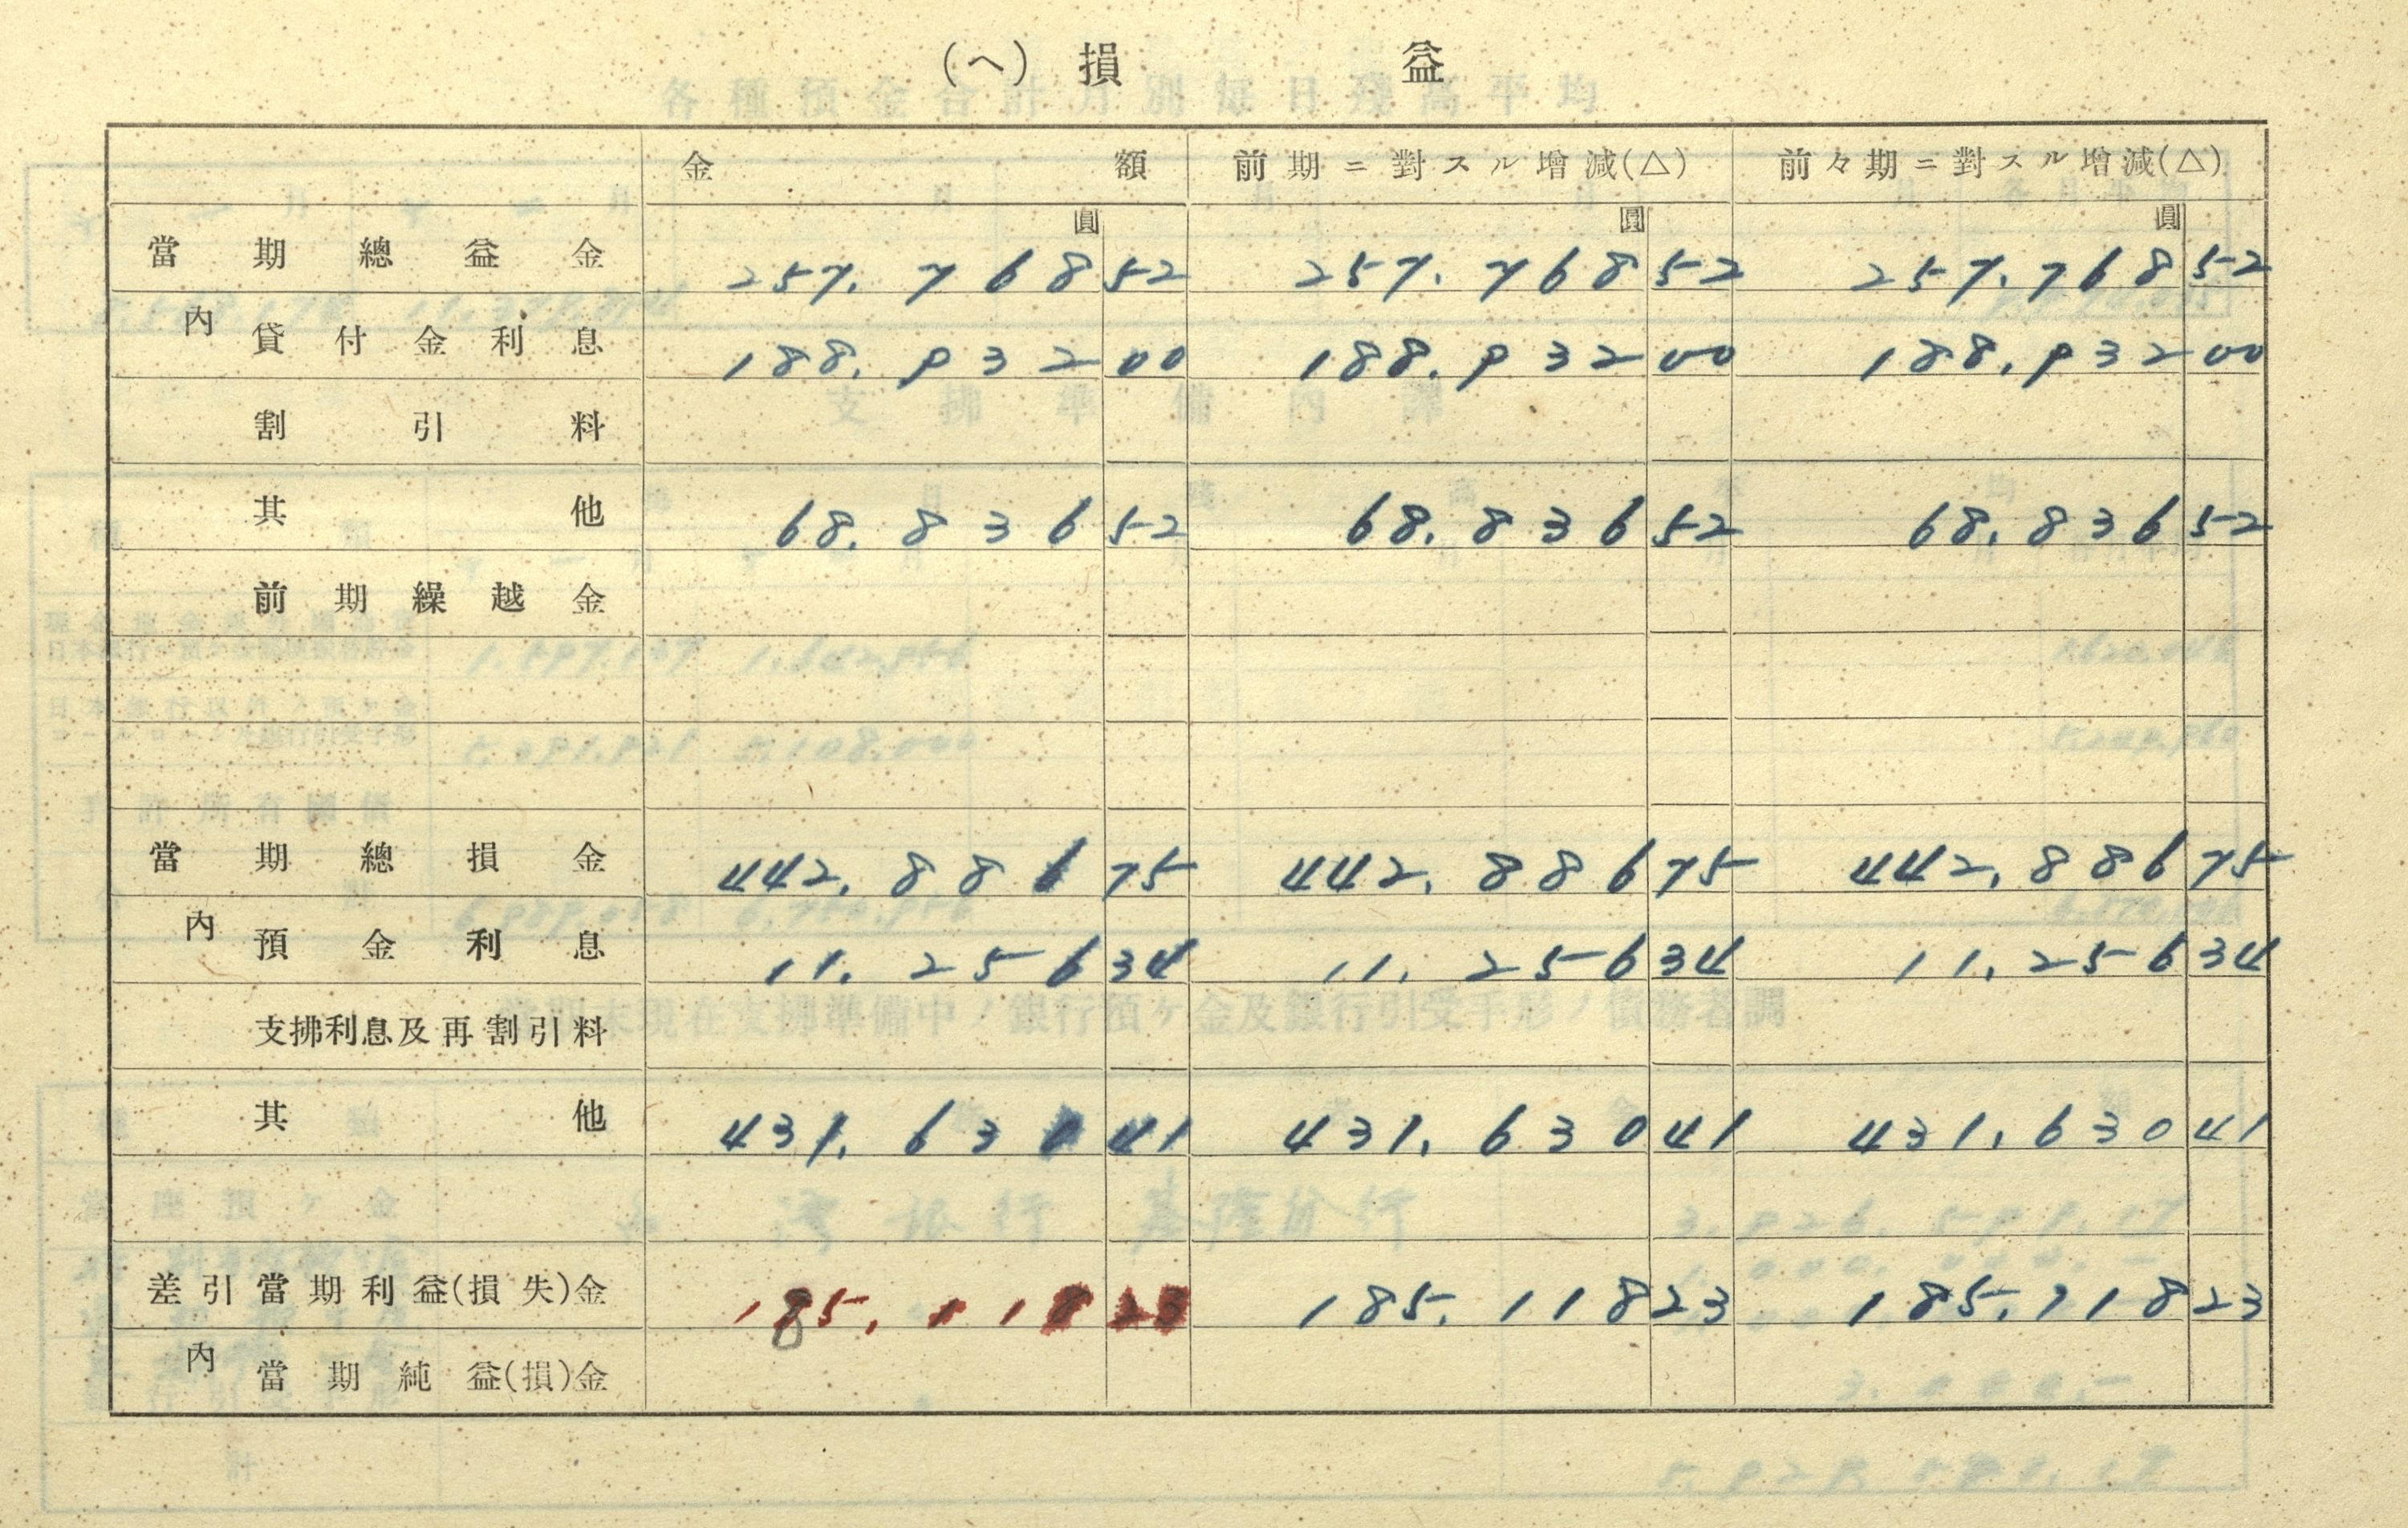 (ヘ) 損 益
金 額 前期ニ對スル增減(△) 前々期ニ對スル增減(△)
圓 圓 圓
當期總益金 257.768 52 257.768 52 257.768 52
內 貸付金利息 188.932 00 188.932 00 188.932 00
割引料
其他 68.836 52 68.836 52 68.836 52
前期繰越金
當期總損金 442.886 75 442.886 75 442.886 75
內 預金利息 11.256 34 11.256 34 11.256 34
支拂利息及再割引料
其他 431.630 41 431.630 41 431.630 41
差引當期利益(損失)金 185.118 23 185.118 23 185.118 23
內 當期純益(損)金